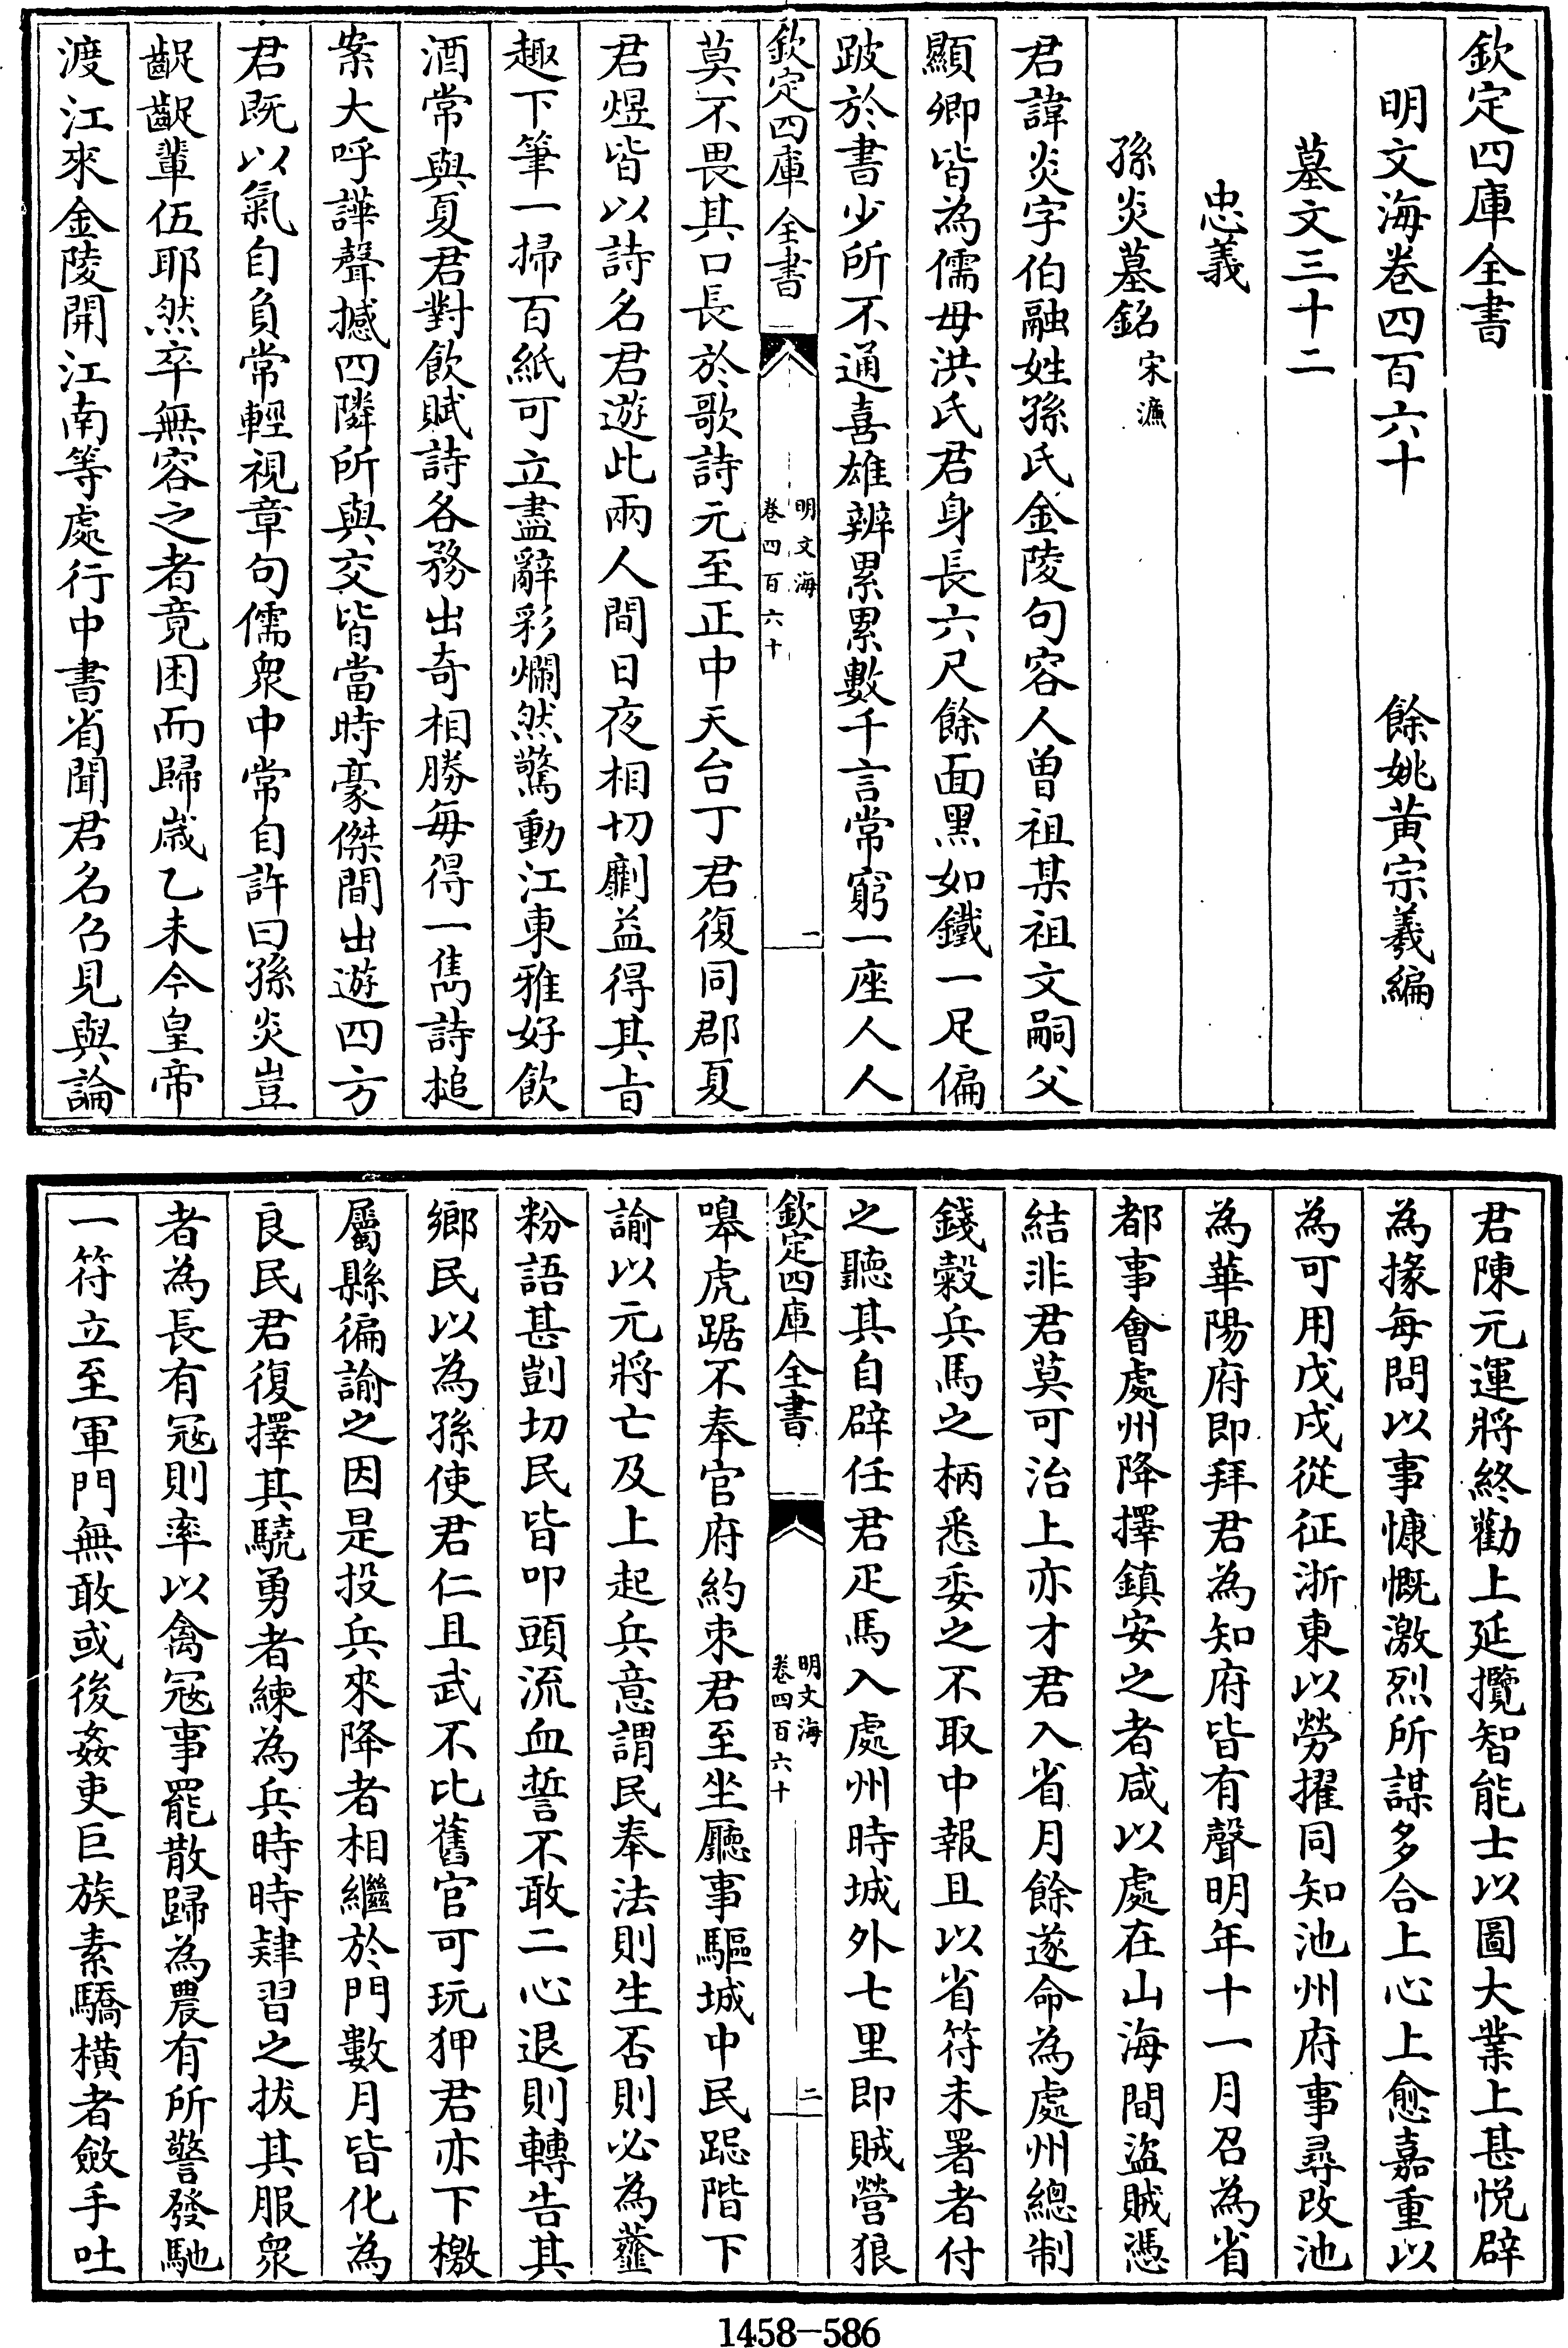 欽定四庫全書
明文海卷四百六十 餘姚黃宗羲編
墓文三十二
忠義
孫炎墓銘宋濂
君諱炎字伯融姓孫氏金陵句容人曾祖某祖文嗣父
顯卿皆為儒母洪氏君身長六尺餘面黑如鐵一足偏
跛於書少所不通喜雄辨累累數千言常窮一座人人
欽定四庫全書 明文海 卷四百六十 一
莫不畏其口長於歌詩元至正中天台丁君復同郡夏
君煜皆以詩名君遊此兩人間日夜相切劘益得其旨
趣下筆一掃百紙可立盡辭彩爛然驚動江東雅好飲
酒常與夏君對飲賦詩各務出奇相勝每得一雋詩搥
案大呼譁聲撼四隣所與交皆當時豪傑間出遊四方
君既以氣自負常輕視章句儒衆中常自許曰孫炎豈
齪齪輩伍耶然卒無容之者竟困而歸歲乙未今皇帝
渡江來金陵開江南等處行中書省聞君名召見與論
君陳元運將終勸上延攬智能士以圖大業上甚悅辟
為掾每問以事慷慨激烈所謀多合上心上愈嘉重以
為可用戊戌從征浙東以勞擢同知池州府事尋改池
為華陽府即拜君為知府皆有聲明年十一月召為省
都事會處州降擇鎮安之者咸以處在山海間盜賊憑
結非君莫可治上亦才君入省月餘遂命為處州總制
錢穀兵馬之柄悉委之不取中報且以省符未署者付
之聽其自辟任君疋馬入處州時城外七里即賊營狼
欽定四庫全書 明文海 卷四百六十 二
嘷虎踞不奉官府約束君至坐廳事驅城中民跽階下
諭以元將亡及上起兵意謂民奉法則生否則必為虀
粉語甚剴切民皆叩頭流血誓不敢二心退則轉告其
鄉民以為孫使君仁且武不比舊官可玩狎君亦下檄
屬縣徧諭之因是投兵來降者相繼於門數月皆化為
良民君復擇其驍勇者練為兵時時肄習之拔其服衆
者為長有冦則率以禽冦事罷散歸為農有所警發馳
一符立至軍門無敢或後姦吏巨族素驕橫者斂手吐
1458-586